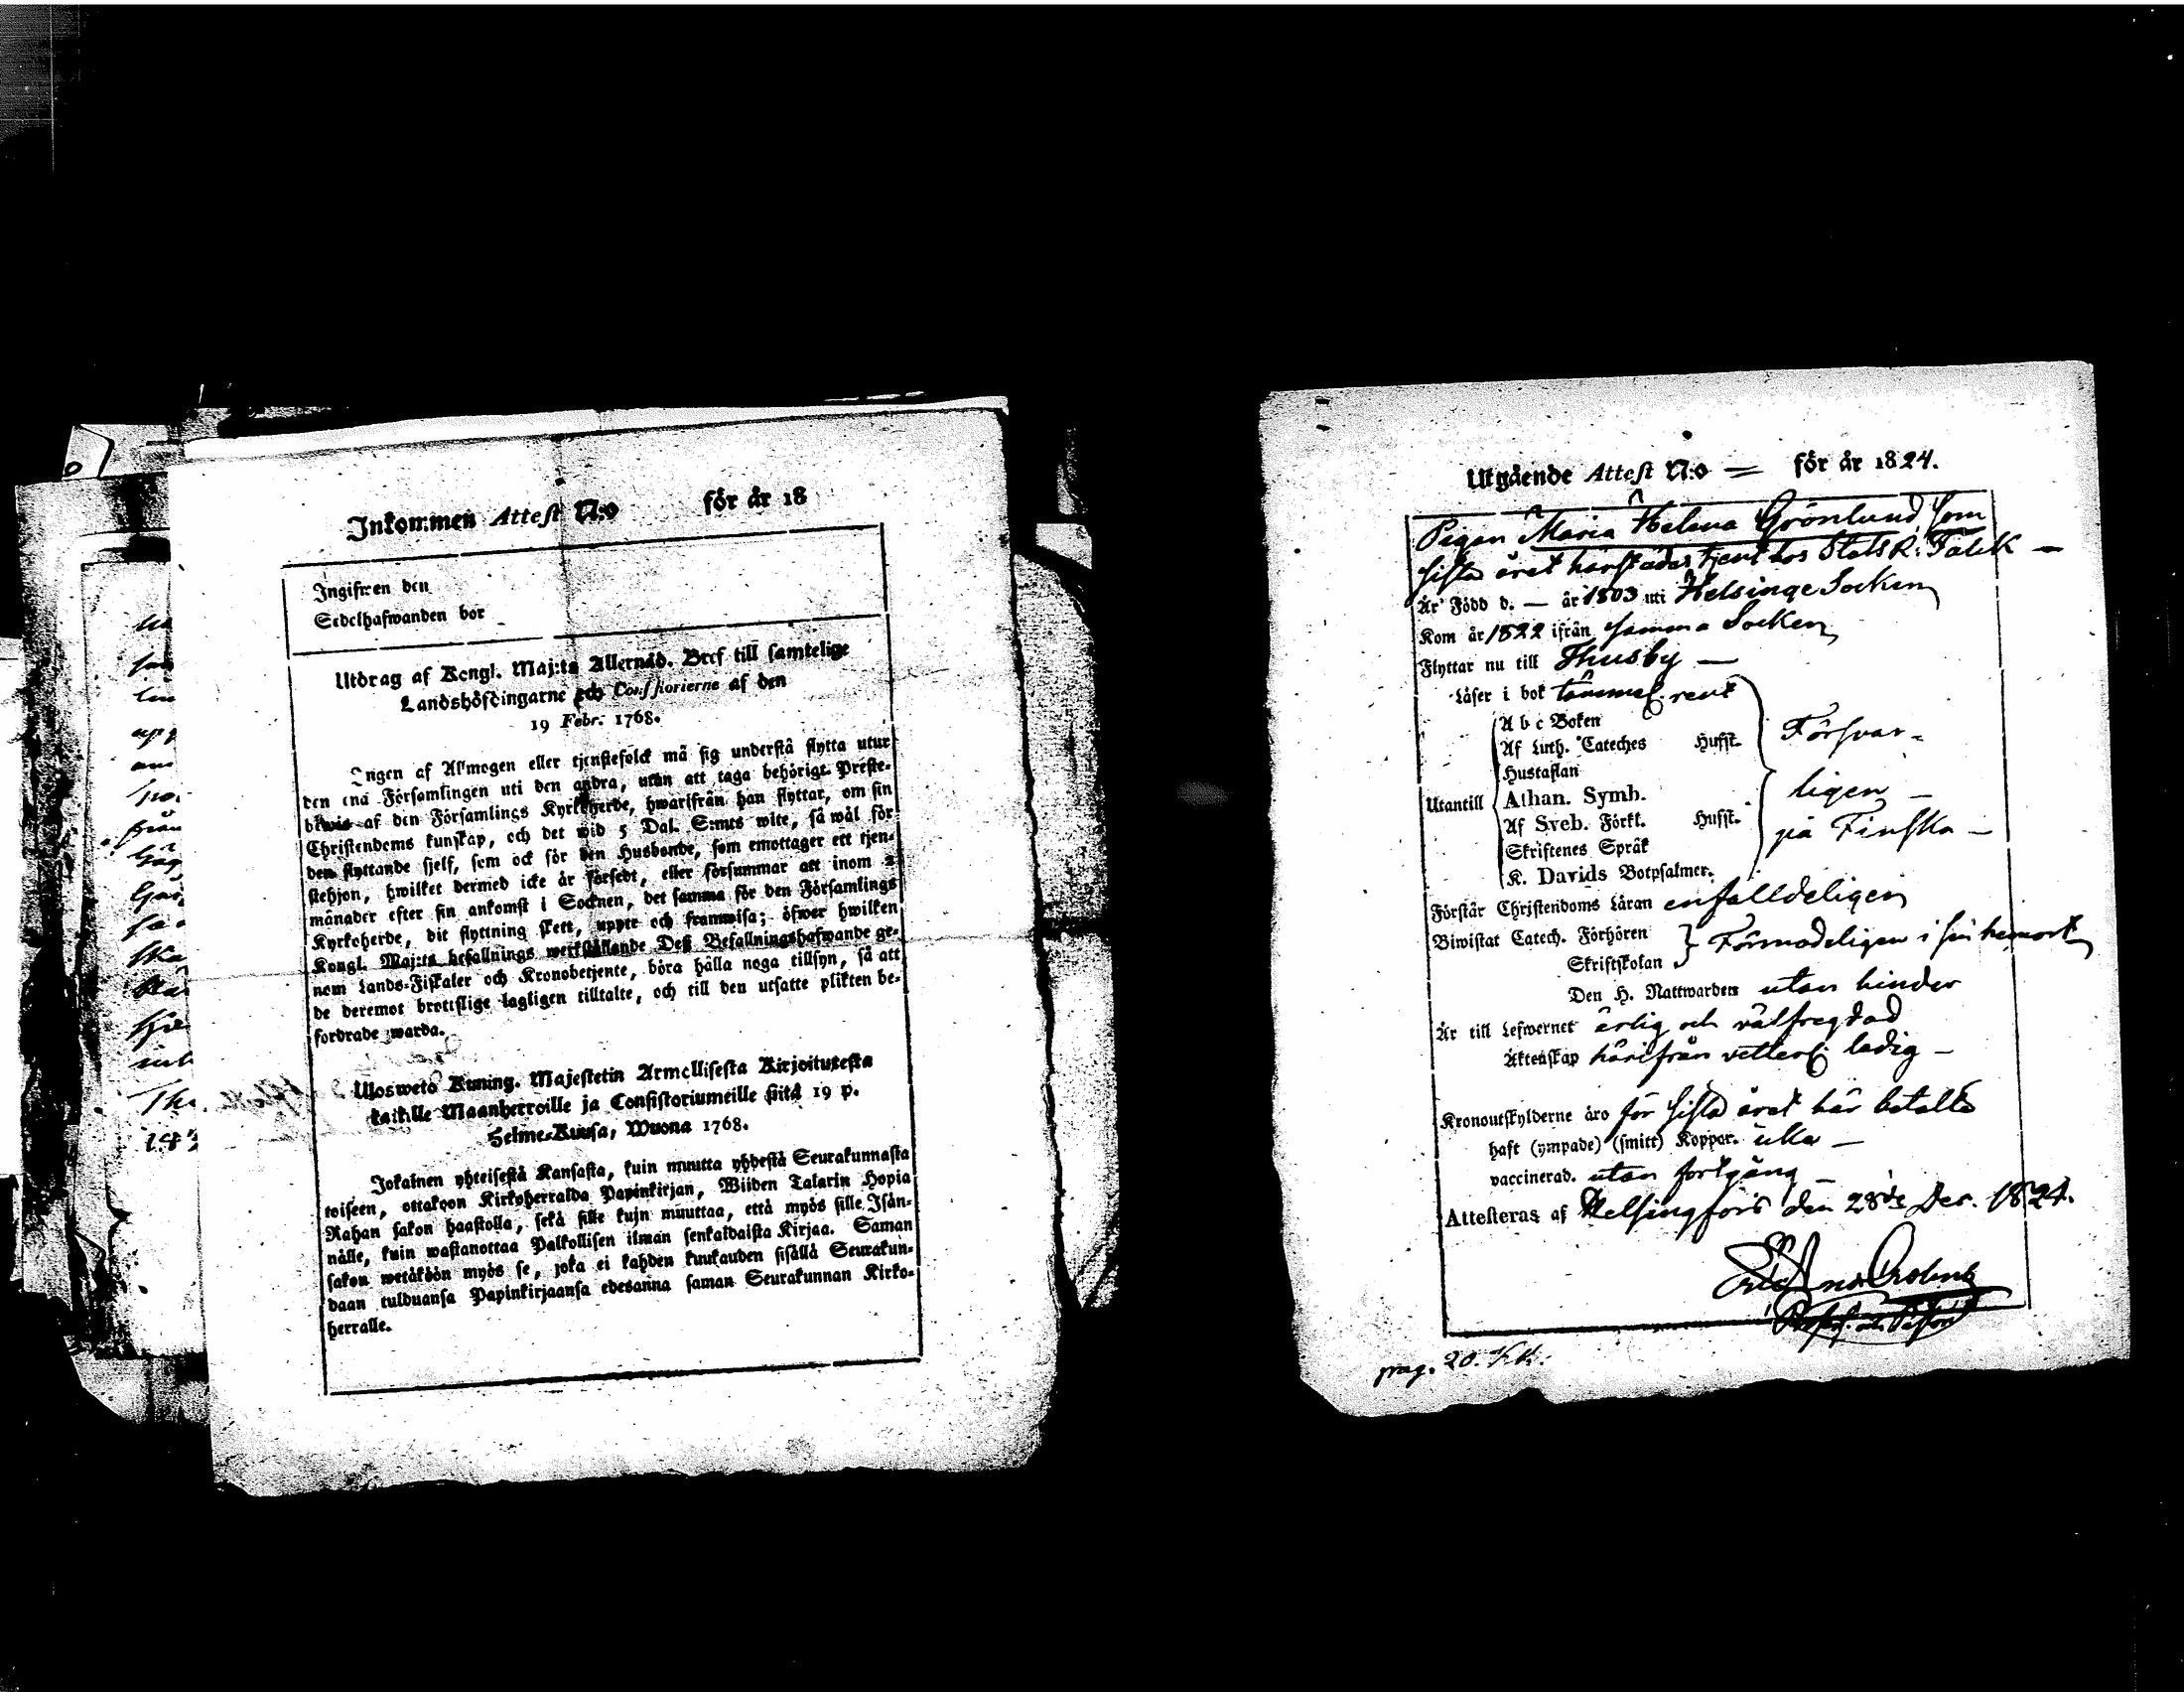 Inkommen Attest N:o för år 18
Ingifwen den
Sedelhafwanden bor
Utdrag af Kongl. Maj:ts Allernåd. Bref till samtelige
Landshöfdingarne och Consistorierne af den
19 Febr. 1768.
Ingen af Allmogen eller tjenstefolck må sig understå flytta utur
den ena Församlingen uti den andra, utan att taga behörigt Preste-
bewis af den Församlings Kyrkoherde, hwarifrån han flyttar, om sin
Christendoms kunskap, och det wid 5 Dal. S:mts wite, så wål för
den flyttande sjelf, som ock för den Husbonde, som emottager ett tjen-
stehjon, hwilket dermed icke år försedt, eller försummar att inom 2
månader efter sin ankomst i Socknen, det samma för den Församlings
Kyrkoherde, dit flyttning skett, uppte och framwisa; öfwer hwilken
Kongl. Maj:ts befallnings werkstållande Deß Befallningshafwande ge-
nom Lands-Fiskaler och Kronobetjente, böra hålla noga tillsyn, så att
de deremot brottslige lagligen tilltalte, och till den utsatte plikten be-
fordrade warda.
Ulosweto Kuning. Majestetin Armollisesta Kirjoituxesta
kaikille Maanherroille ja Consistoriumeille siitå 19 p.
Helme-Kuusa, Wuona 1768.
Jokainen yhteisestå Kansasta, kuin muutta yhdestå Seurakunnasta
toiseen, ottakoon Kirkoherralda Papinkirjan, Wiiden Talarin Hopia
Rahan sakon haastolla, sekå sille kuin muuttaa, ettå myös sille Isån-
nålle, kuin wastanottaa Palkollisen ilman senkaldaista Kirjaa. Saman
sakon wetåköön myös se, joka ei kahden kuukauden sisållå Seurakun-
daan tulduansa Papinkirjaansa edesanna saman Seurakunnan Kirko-
herralle.
Utgående Attest N:o — för år 1824.
Pigan Maria Helena Grönlund, som
sista året härstädes tjent hos Stats R: Falck —
År Född d. — år 1803 uti Helsinge Socken
Kom år 1822 ifrån samma Socken
Flyttar nu till Thusby —
Låser i bok tämmel. rent
Utantill
A b c Boken
Af Luth. Cateches Hufst.
Hustaflan
Athan. Symb.
Af Sveb. Förkl. Hufst.
Skriftenes Språk
K. Davids Botpsalmer.
Försvar-
ligen —
på Finska —
Förstår Christendoms Låran enfalldeligen
Biwistat Catech. Förhören
Skriftskolan
Förmodeligen i sin hemort
Den H. Nattwarden utan hinder
År till Lefwernet ärlig och välfregdad
Åktenskap härifrån vetterl. ledig —
Kronoutskylderne äro för sista året här betalte
haft (ympade) (smitt) Koppor. icke —
vaccinerad. utan fortgång —
Attesteras af Helsingfors den 28de Dec. 1824.
pag. 20.